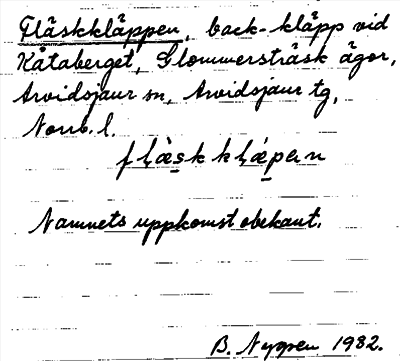 Fläskkläppen, back-kläpp vid
Kåtaberget, Glommersträsk ägor,
Arvidsjaur sn, Arvidsjaur tg,
Norrb. l.
fläskkläpen
Namnets uppkomst obekant.
B. Nygren 1982.